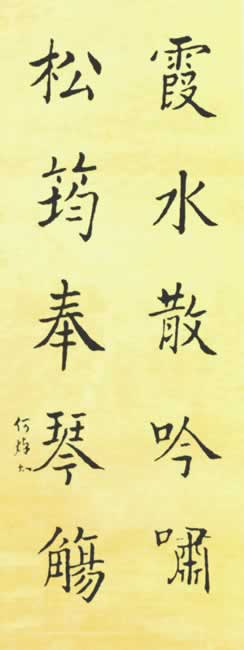 霞水散吟嘯
松筠奉琴觴
何